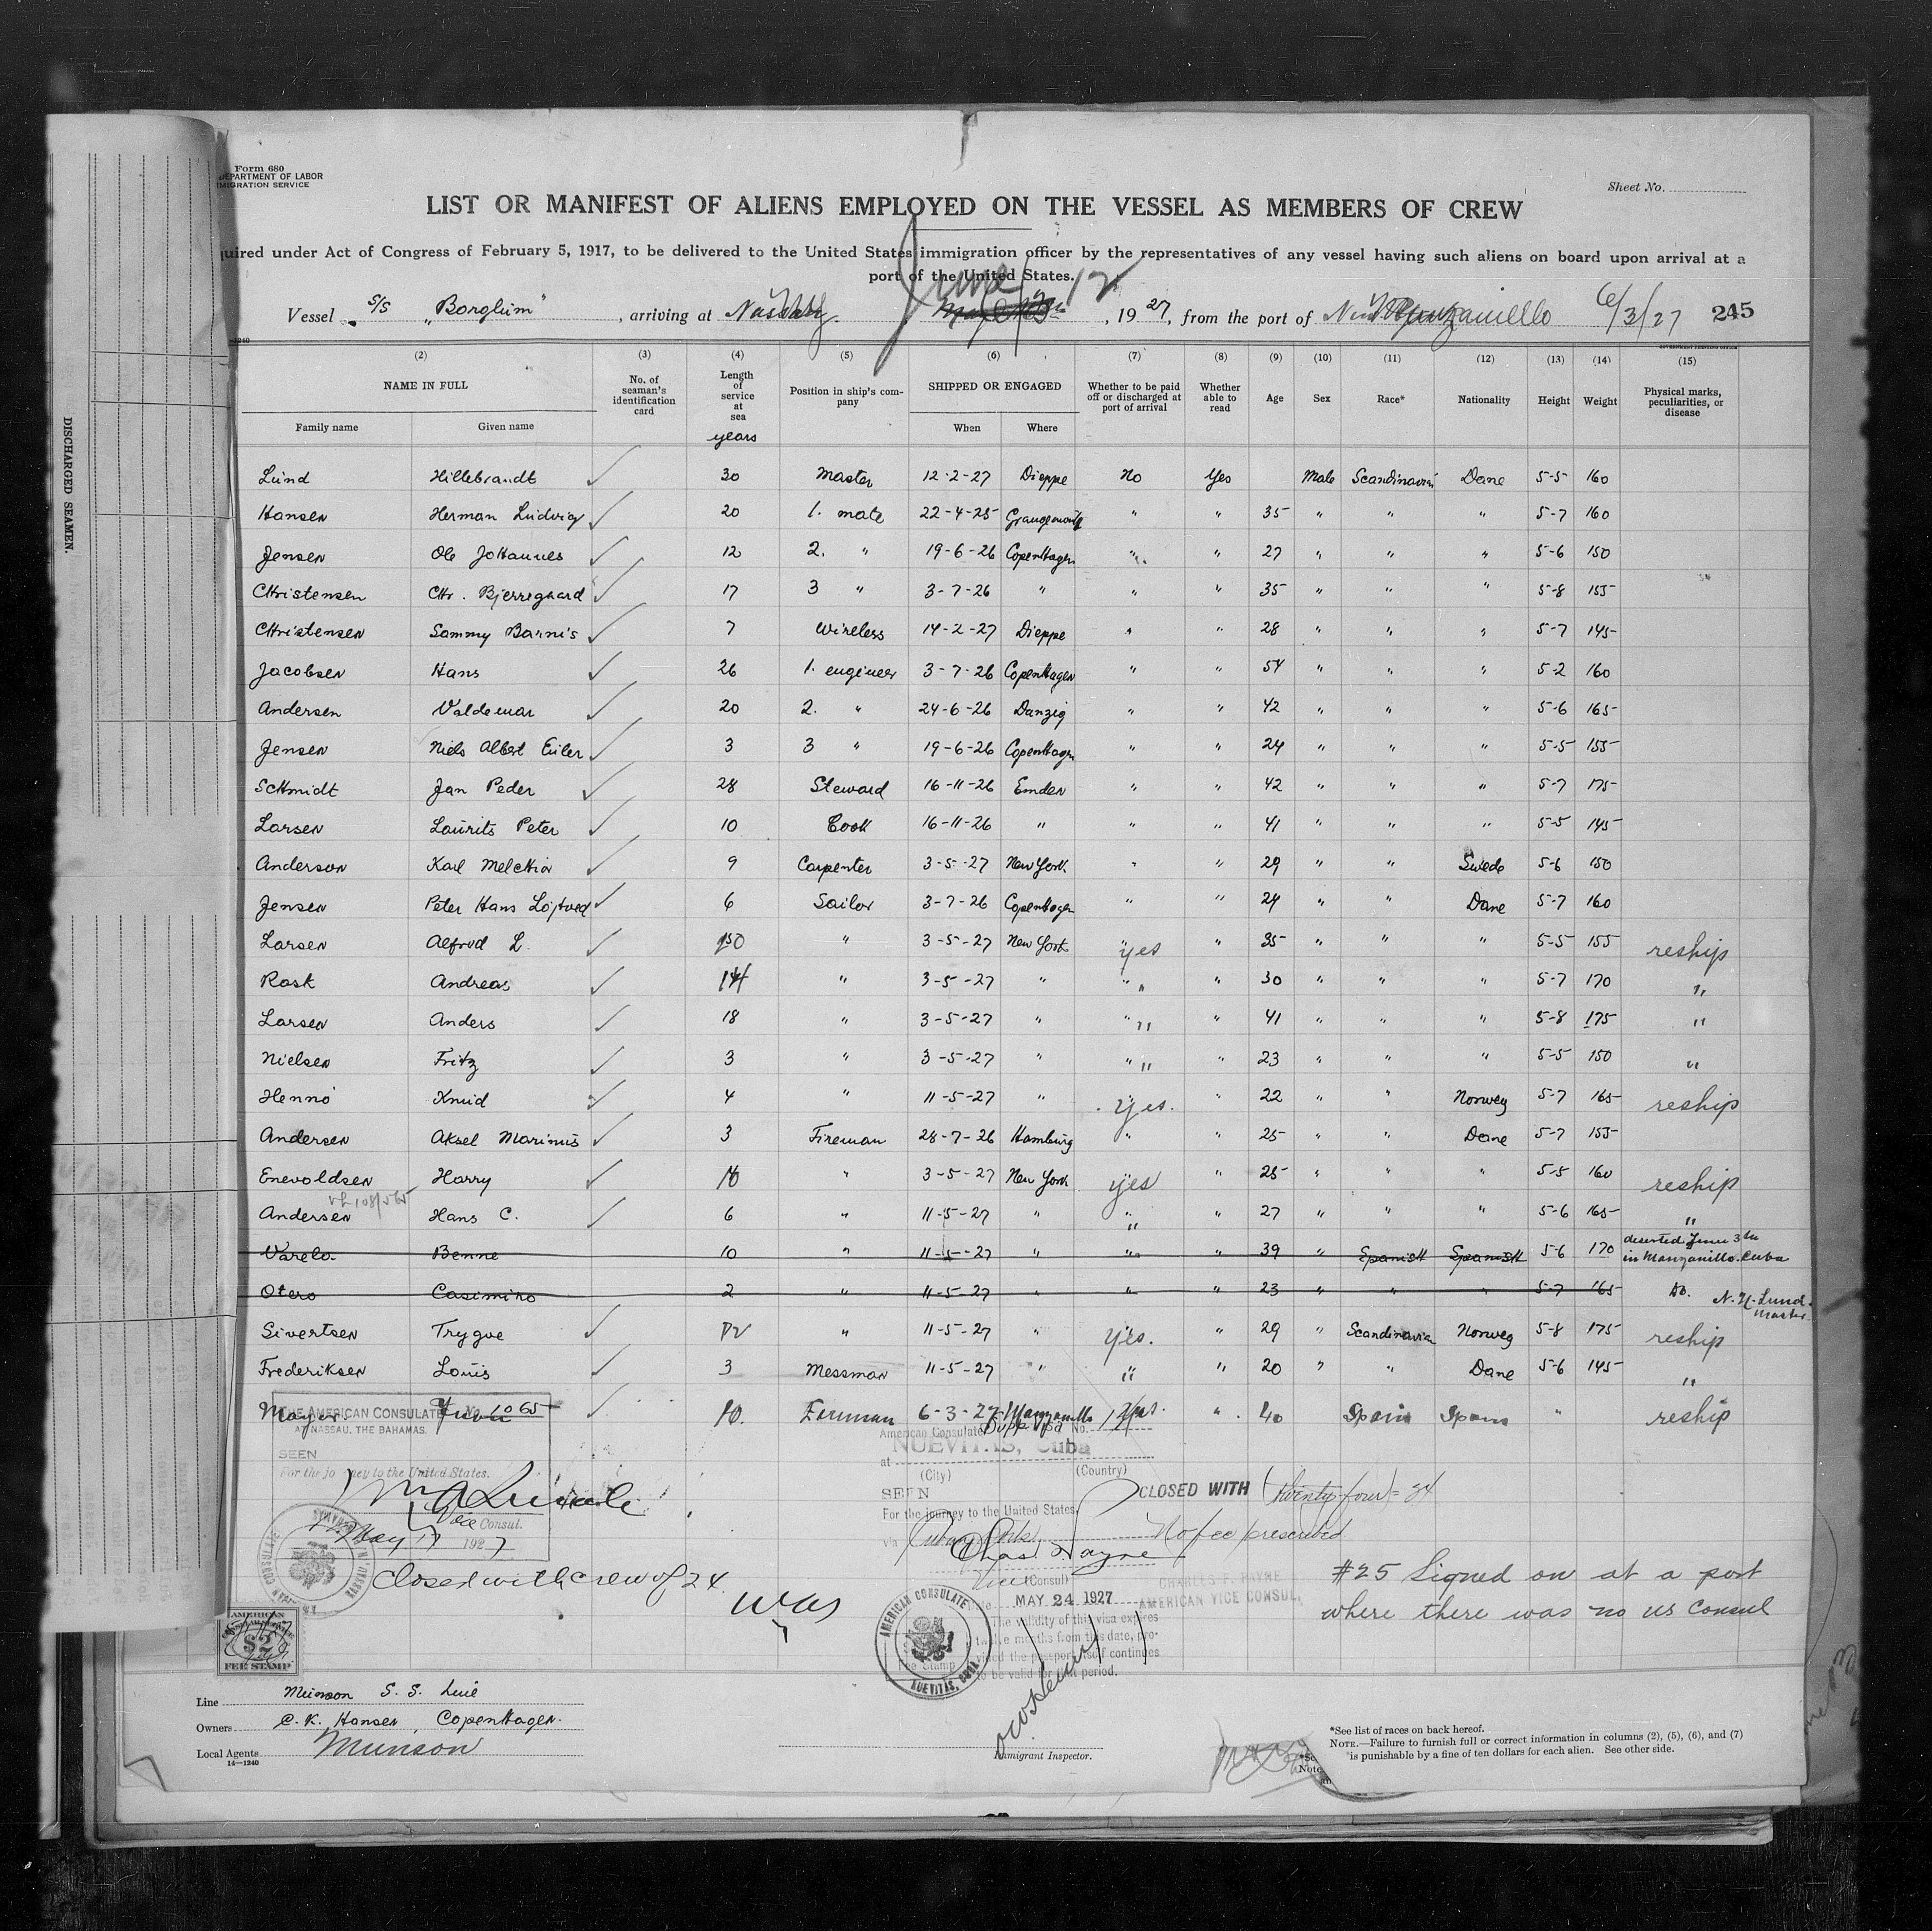 Form 680
DEPARTMENT OF LABOR
MIGRATION SERVICE
Sheet No.
LIST OR MANIFEST OF ALIENS EMPLOYED ON THE VESSEL AS MEMBERS OF CREW
quired under Act of Congress of February 5, 1917, to be delivered to the United States immigration officer by the representatives of any vessel having such aliens on board upon arrival at a
port of the United States.
June 12
Vessel S/S "Borglum", arriving at , 1927, from the port of Manzanillo 6/3/27 245
(2) (3) (4) (5) (6) (7) (8) (9) (10) (11) (12) (13) (14) (15)
NAME IN FULL No. of seaman's identification card Length of service at sea Position in ship's company SHIPPED OR ENGAGED Whether to be paid off or discharged at port of arrival Whether able to read Age Sex Race* Nationality Height Weight Physical marks, peculiarities, or disease
Family name Given name years When Where
Lund Hillebrandt 30 Master 12-2-27 Dieppe No Yes Male Scandinavian Dane 5-5 160
Hansen Herman Ludvig 20 1. mate 22-4-25 Grangemouth " " 35 " " " 5-7 160
Jensen Ole Johannes 12 2. " 19-6-26 Copenhagen " " 27 " " " 5-6 150
Christensen Chr. Bjerregaard 17 3 " 3-7-26 " " " 35 " " " 5-8 155
Christensen Sammy Barnis 7 Wireless 14-2-27 Dieppe " " 28 " " " 5-7 145
Jacobsen Hans 26 1. engineer 3-7-26 Copenhagen " " 54 " " " 5-2 160
Andersen Valdemar 20 2. " 24-6-26 Danzig " " 42 " " " 5-6 165
Jensen Niels Albert Eiler 3 3 " 19-6-26 Copenhagen " " 24 " " " 5-5 155
Schmidt Jan Peder 28 Steward 16-11-26 Emden " " 42 " " " 5-7 175
Larsen Laurits Peter 10 Cook 16-11-26 " " " 41 " " " 5-5 145
Anderson Karl Melchior 9 Carpenter 3-5-27 New York " " 29 " " Swede 5-6 150
Jensen Peter Hans Löptved 6 Sailor 3-7-26 Copenhagen " " 24 " " Dane 5-7 160
Larsen Alfred L. " 3-5-27 New York yes " 35 " " " 5-5 155 reship
Rask Andreas 14 " 3-5-27 " " " 30 " " " 5-7 170 "
Larsen Anders 18 " 3-5-27 " " " 41 " " " 5-8 175 "
Nielsen Fritz 3 " 3-5-27 " " " 23 " " " 5-5 150 "
Henno Knud 4 " 11-5-27 " yes. " 22 " " Norweg 5-7 165 reship
Andersen Aksel Marinus 3 Fireman 28-7-26 Hamburg " " 25 " " Dane 5-7 155
Enevoldsen Harry 10 " 3-5-27 New York yes " 25 " " " 5-5 160 reship
Andersen Hans C. 6 " 11-5-27 " " " 27 " " " 5-6 165 "
Varelo Benne 10 " 11-5-27 " " " 39 " Spanish Spanish 5-6 170 deserted June 3th in Manzanillo. Cuba
Otero Casimiro 2 " 11-5-27 " " " 23 " " " 5-7 165 Do. N.H. Lund. Master.
Sivertsen Trygve " 11-5-27 " yes. " 29 " Scandinavian Norweg 5-8 175 reship
Frederiksen Louis 3 Messman 11-5-27 " " " 20 " " Dane 5-6 145 "
Mayer 10. Fireman 6-3-27 Manzanillo " 40 Spain Spain " reship
THE AMERICAN CONSULATE No. 1065
AT NASSAU, THE BAHAMAS.
SEEN
For the journey to the United States.
Vice Consul.
May 17 1927
AMERICAN CONSULATE
Closed with crew of 24.
American Consulate Supp Visa No.
at NUEVITAS, Cuba
(City) (Country)
SEEN
For the journey to the United States
via
Chas F Payne
Vice (Consul)
MAY 24 1927
The validity of this visa expires
twelve months from this date, provided the passport itself continues
to be valid for that period.
Fee Stamp
CLOSED WITH (twenty four) = 24
No fee prescribed
CHARLES F. PAYNE
AMERICAN VICE CONSUL
AMERICAN CONSULATE
NUEVITAS, CUBA
#25 signed on at a port
where there was no US Consul
AMERICAN
$2
FEE STAMP
Line Munson S. S. Line
Owners C. K. Hansen, Copenhagen.
Local Agents Munson
14—1240
Immigrant Inspector.
*See list of races on back hereof.
NOTE.—Failure to furnish full or correct information in columns (2), (5), (6), and (7)
is punishable by a fine of ten dollars for each alien. See other side.
DISCHARGED SEAMEN.